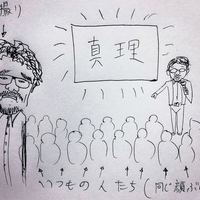 撮り
真理
いつもの人たち(同じ顔ぶ